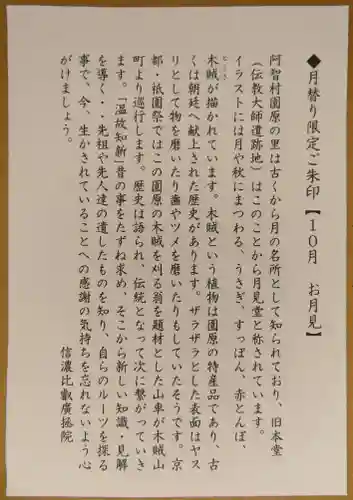 ◆月替り限定ご朱印【10月　お月見】
阿智村園原の里は古くから月の名所として知られており、旧本堂
(伝教大師遺跡地)はこのことから月見堂と称されています。
イラストには月や秋にまつわる、うさぎ、すっぽん、赤とんぼ、
木賊が描かれています。木賊という植物は園原の特産品であり、古
くは朝廷へ献上された歴史があります。ザラザラとした表面はヤス
リとして物を磨いたり歯やツメを磨いたりもしていたそうです。京
都・祇園祭ではこの園原の木賊を刈る翁を題材とした山車が木賊山
町より巡行します。歴史は語られ、伝統となって次に繋がっていき
ます。『温故知新』昔の事をたずね求め、そこから新しい知識・見解
を導く・・先祖や先人達の遺したものを知り、自らのルーツを探る
事で、今、生かされていることへの感謝の気持ちを忘れないよう心
がけましょう。
信濃比叡廣拯院